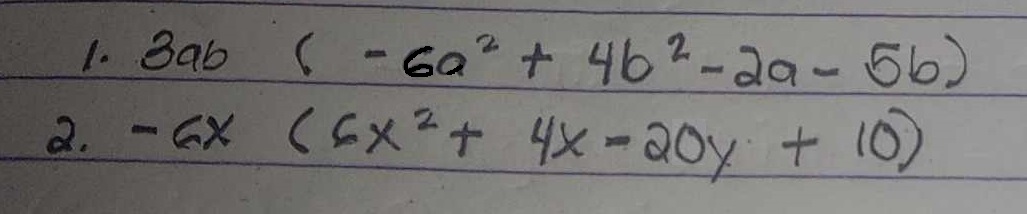 1. 3ab ( -6a² + 4b² - 2a - 5b)
2. -6x (6x² + 4x - 20y + 10)